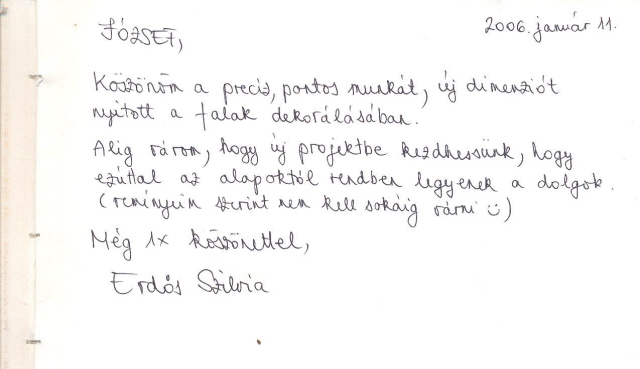 JÓZSEF,
2006. január 11.
Köszönöm a precíz, pontos munkát, új dimenziót
nyitott a falak dekorálásában.
Alig várom, hogy új projektbe kezdhessünk, hogy
ezúttal az alapoktól rendben legyenek a dolgok.
(reményeim szerint nem kell sokáig várni ☺)
Még 1x köszönettel,
Erdős Szilvia